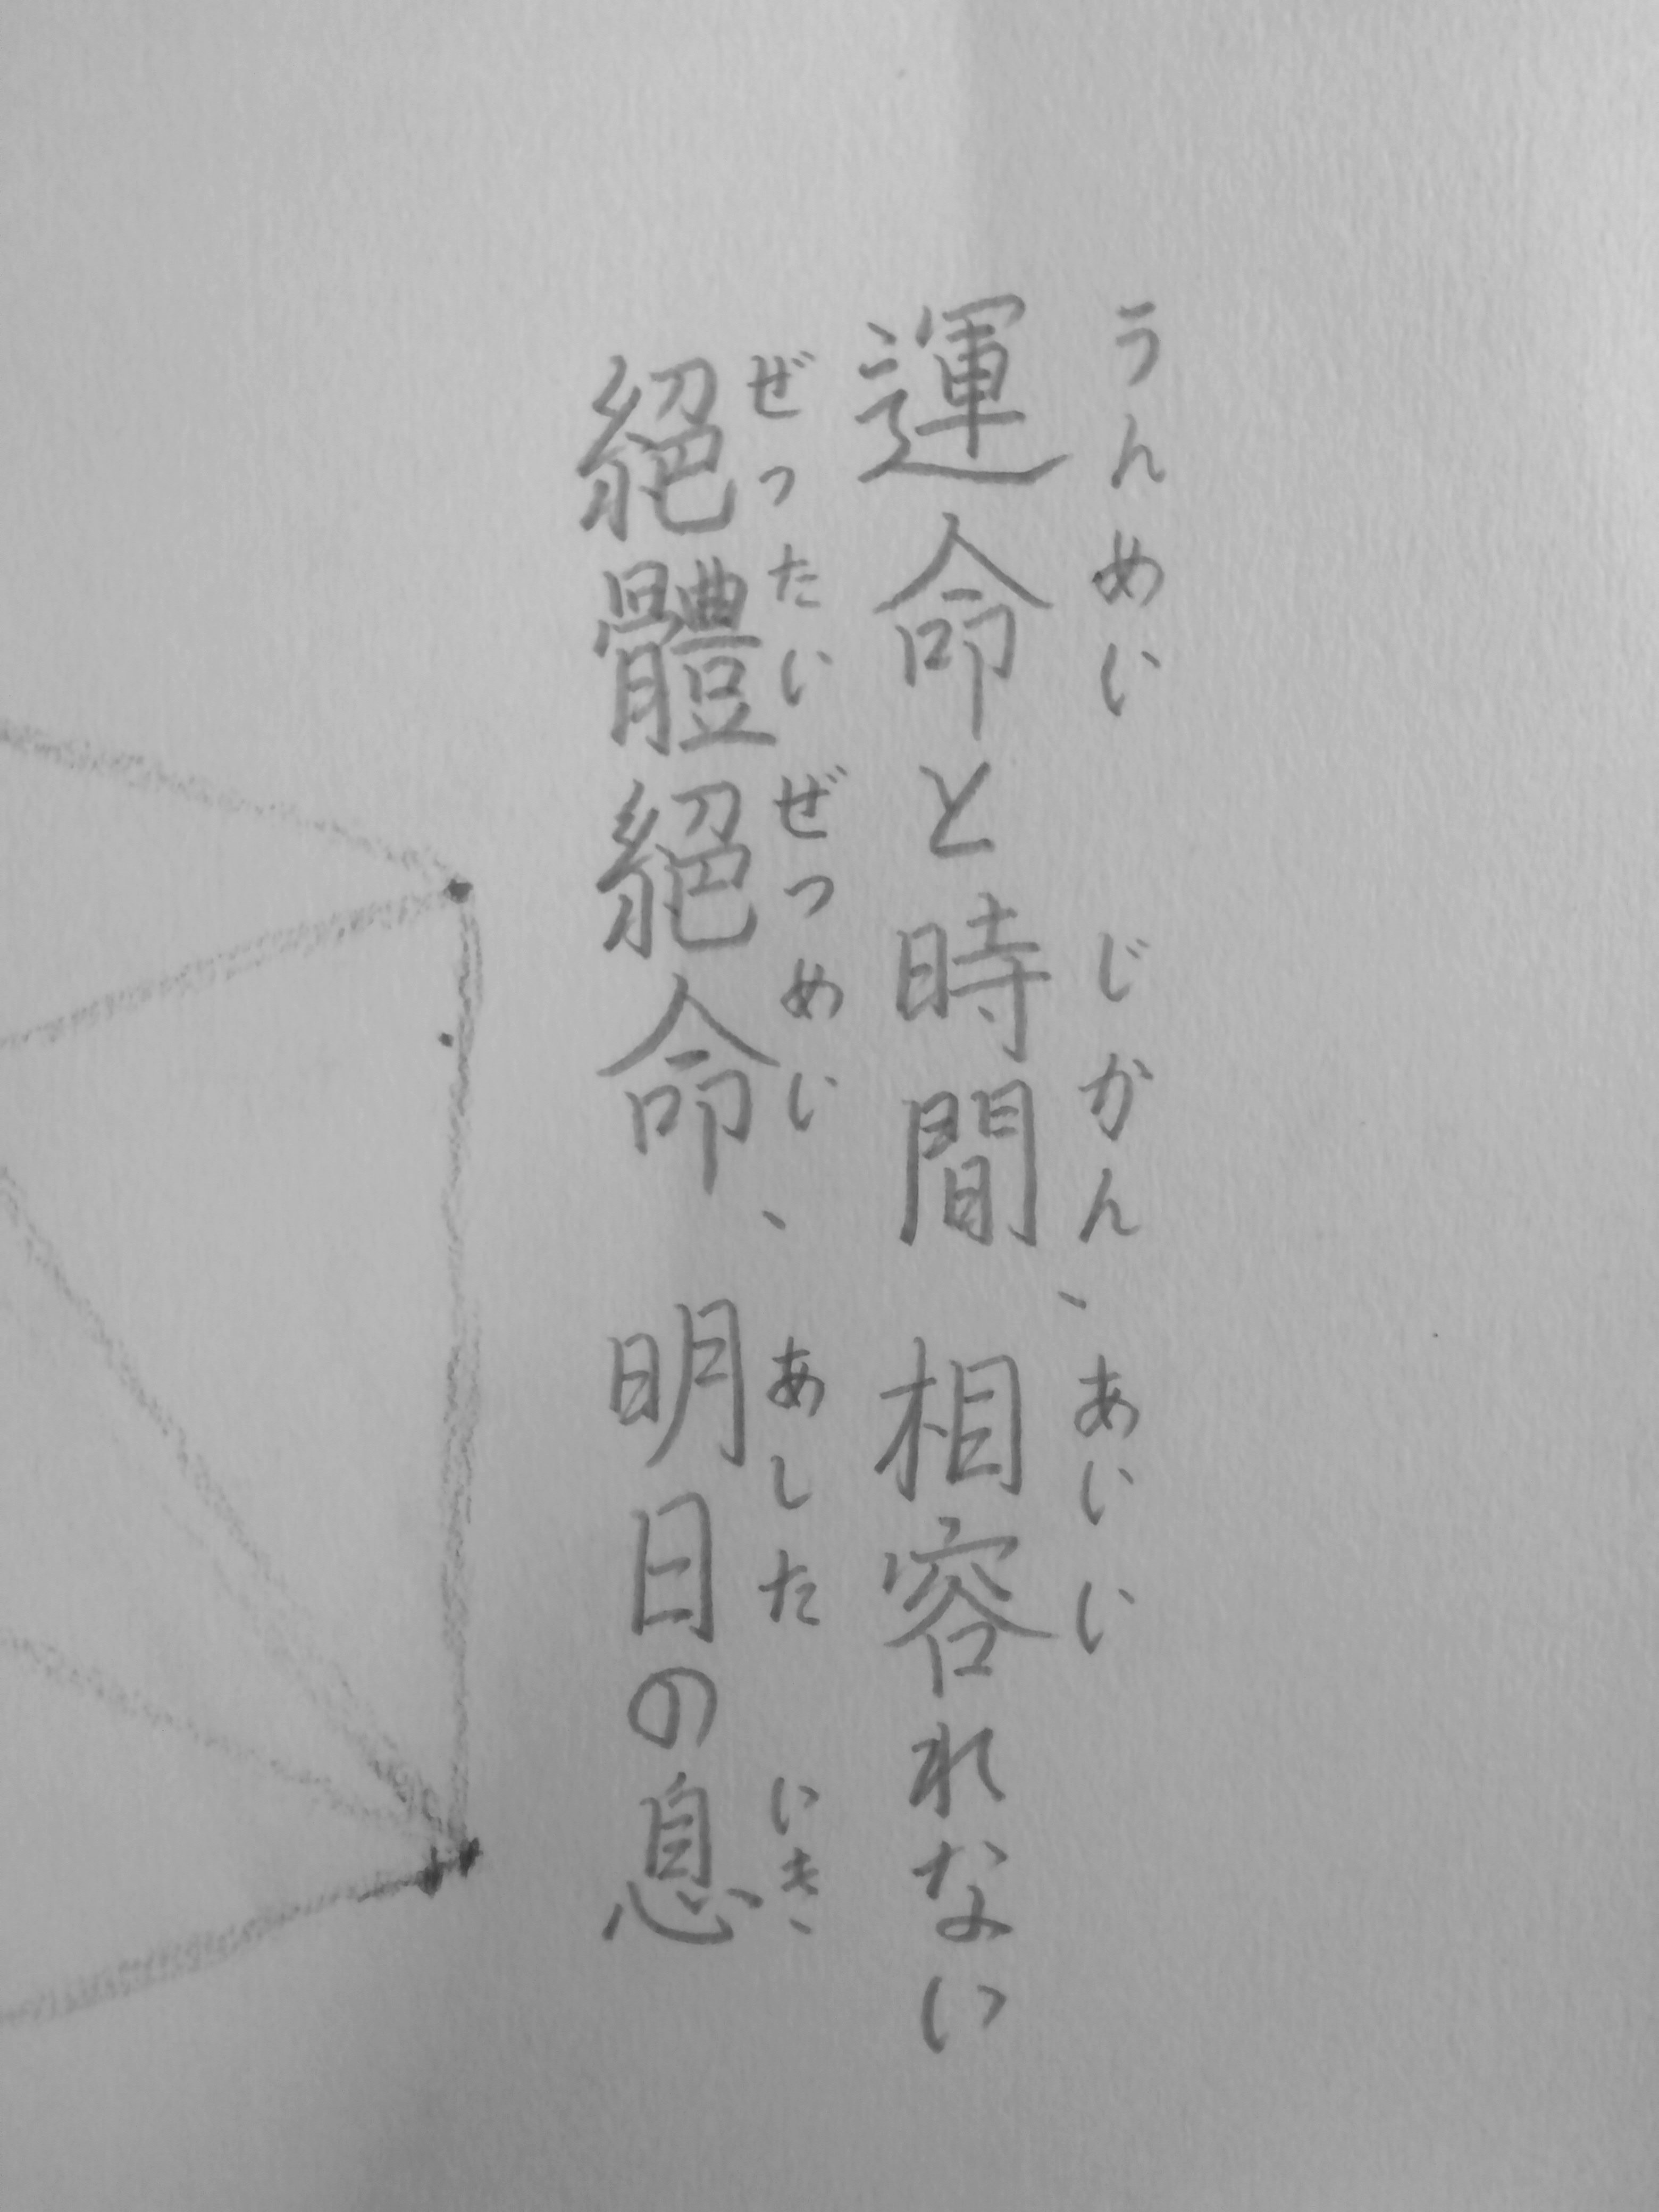 うんめい じかん、あいい
運命と時間、相容れない
ぜったいぜつめい、あした いき、
絕體絕命、明日の息